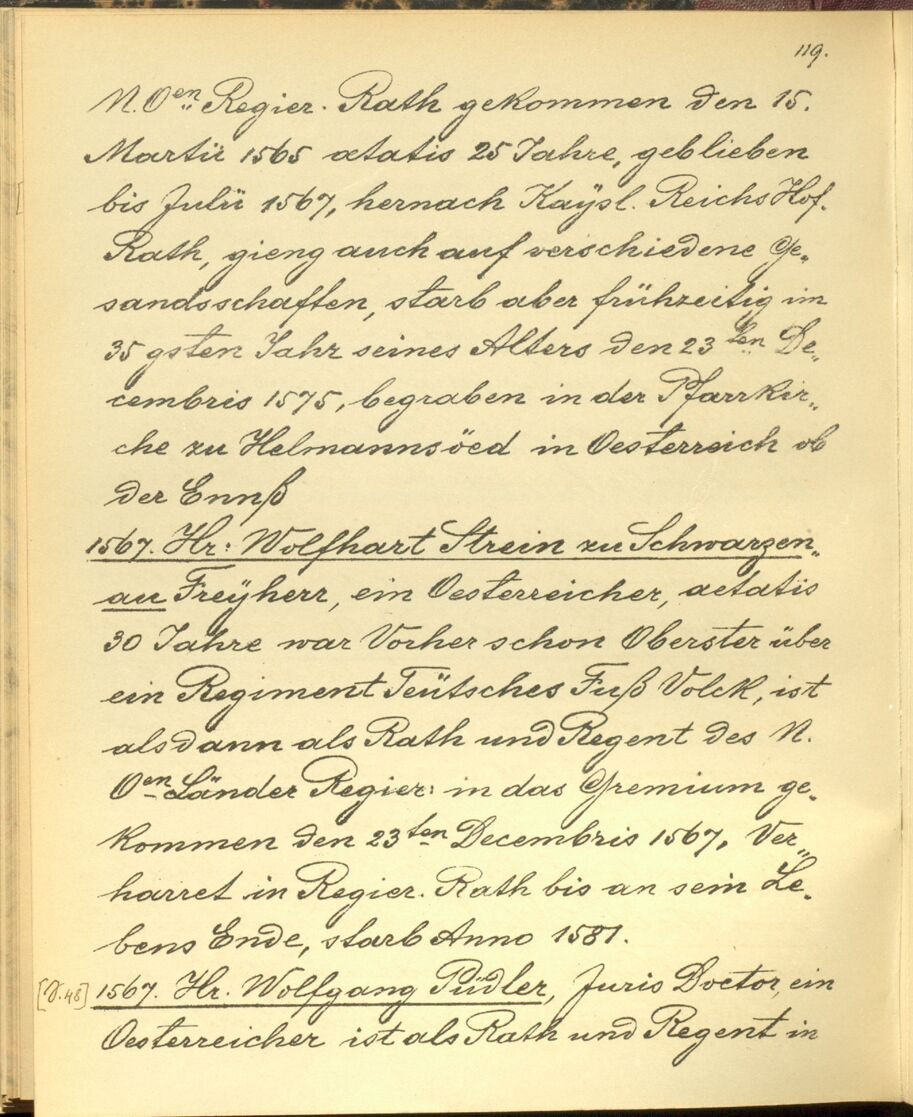 119.
N.Oen Regier. Rath gekommen den 15.
Martii 1565 ætatis 25 Jahre, geblieben
bis Julii 1567, hernach Kaÿsl. Reichs Hof-
Rath, gieng auch auf verschiedene Ge-
sandsschaften, starb aber frühzeitig im
35 gsten Jahr seines Alters den 23ten De-
cembris 1575, begraben in der Pfarrkir-
che zu Helmannsöed in Oesterreich ob
der Ennß
1567. Hr: Wolfhart Strein zu Schwarzen-
au Freÿherr, ein Oesterreicher, aetatis
30 Jahre war Vorher schon Oberster über
ein Regiment Teütsches Fuß Volck, ist
alsdann als Rath und Regent des N.
Oen Länder Regier: in das Gremium ge-
kommen den 23ten Decembris 1567, Ver-
harret in Regier. Rath bis an sein Le-
bens Ende, starb Anno 1581.
1567. Hr. Wolfgang Püdler, Juris Doctor, ein
Oesterreicher ist als Rath und Regent in